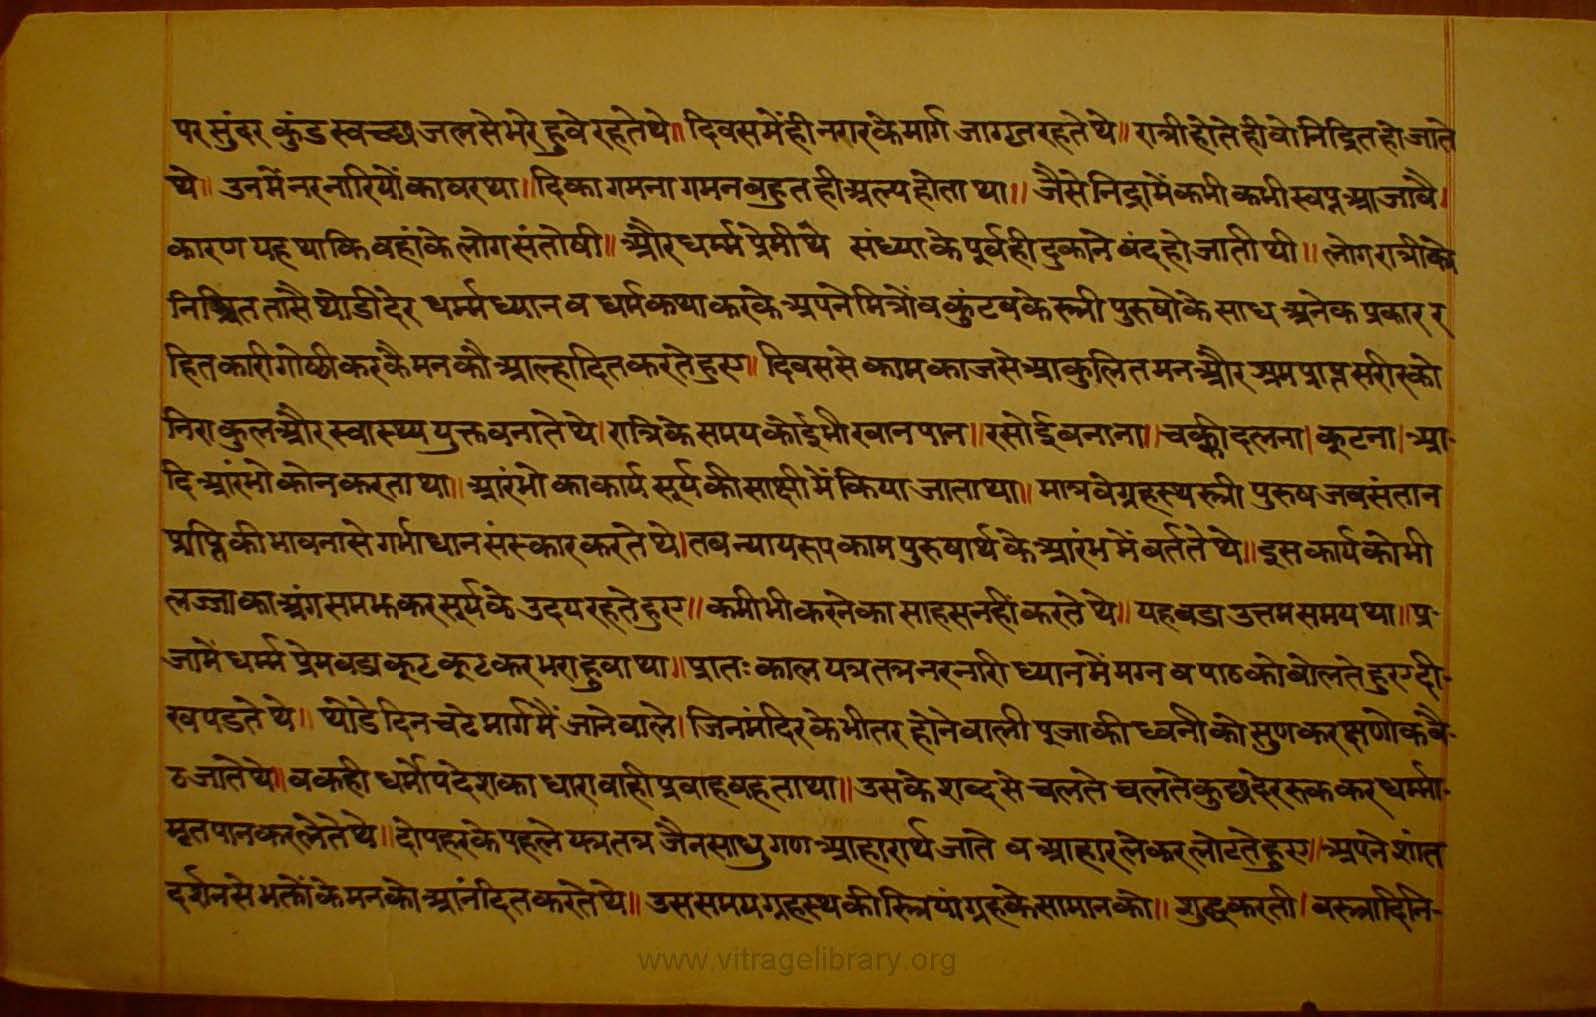 पर सुंदर कुंड स्वच्छ जलसे भरे हुवे रहतेथे॥ दिवसमें ही नगरके मार्ग जाग्रत रहते थे॥ रात्री होते ही वो निद्रित हो जाते
थे॥ उनमें नर नारियों का वरथा॥ दिका गमना गमन बहुत ही अल्प होता था॥ जैसे निद्रा में कभी कभी स्वप्न आ जावै।
कारण यह था कि वहांके लोग संतोषी॥ और धर्म्म प्रेमी थे संध्या के पूर्व ही दुकाने बंद हो जाती थी॥ लोग रात्री को
निश्चित तासै थोडी देर धर्म्म ध्यान व धर्म कथा करके अपने मित्रों व कुंटबके स्त्री पुरुषों के साध अनेक प्रकार र
हितकारी गोष्ठी करकै मन कौ आल्हादित करते हुए॥ दिवससे काम काजसे आकुलित मन और श्रम प्राप्त सरीरको
निराकुल और स्वास्थ्य युक्त बनाते थे। रात्रि के समय कोई भी खान पान॥ रसोई बनाना॥ चक्की दलना। कूटना। आ-
दि आरंभो को न करता था॥ आरंभो का कार्य सूर्य की साक्षी में किया जाता था॥ मात्र वे ग्रहस्थ स्त्री पुरुष जब संतान
प्राप्ति की भावना से गर्भाधान संस्कार करते थे। तब न्यायरुप काम पुरुषार्थ के आरंभ में बर्तते थे॥ इस कार्य को भी
लज्जा का अंग समझकर सूर्यके उदय रहते हुए॥ कभी भी करने का साहस नहीं करते थे॥ यह बडा उत्तम समय था॥ प्र-
जामें धर्म्म प्रेम बडा कूट कूट कर भरा हुवा था॥ प्रातः काल यत्र तत्र नर नारी ध्यान में मग्न व पाठ को बोलते हुए दी-
ख पडते थे॥ थोडे दिन चढे मार्ग मैं जाने वाले। जिनमंदिर के भीतर होने वाली पूजा की ध्वनी को सुणकर क्षणेक बै-
ठ जाते थे॥ व कही धर्मोपदेश का धारावाही प्रवाह बहता था॥ उसके शब्द से चलते चलते कुछ देर रुक कर धर्म्मा-
मृत पान कर लेते थे॥ दोपहर के पहले यत्र तत्र जैन साधु गण आहारार्थ जाते व आहार लेकर लोटते हुए॥ अपने शांत
दर्शन से भक्तों के मन को आंनंदित करते थे॥ उस समय ग्रहस्थ की स्त्रियां ग्रहके सामान को॥ शुद्ध करती। वस्त्रादि नि-
www.vitragelibrary.org